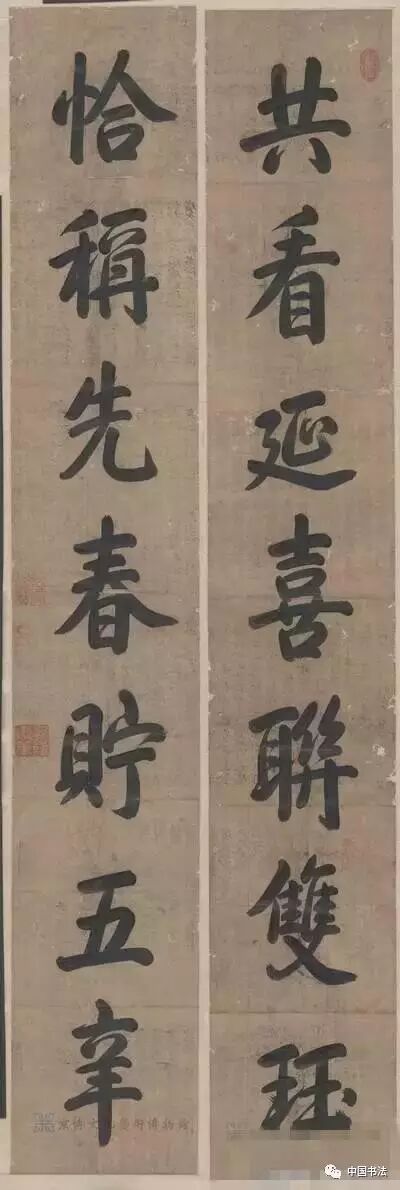 共看延喜聯雙珏
恰稱先春貯五辛
中国书法